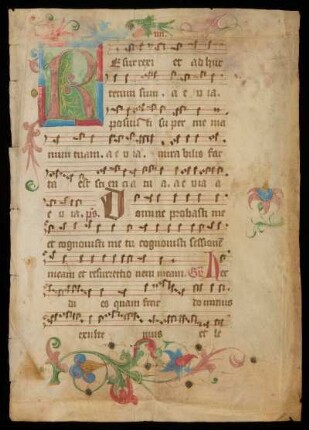 Resurrexi et adhuc
tecum sum . a e v ia .
posuisti super me ma
num tuam . a e v ia . mira bilis fac
ta est sci en ci a tu a . ae via a
e v ia . ps Domine probasti me
et cognovisti me tu cognovisti sessionē
meam et resurrectio nem meam . Hec
di es quam fecit dominus
exulte mus et le